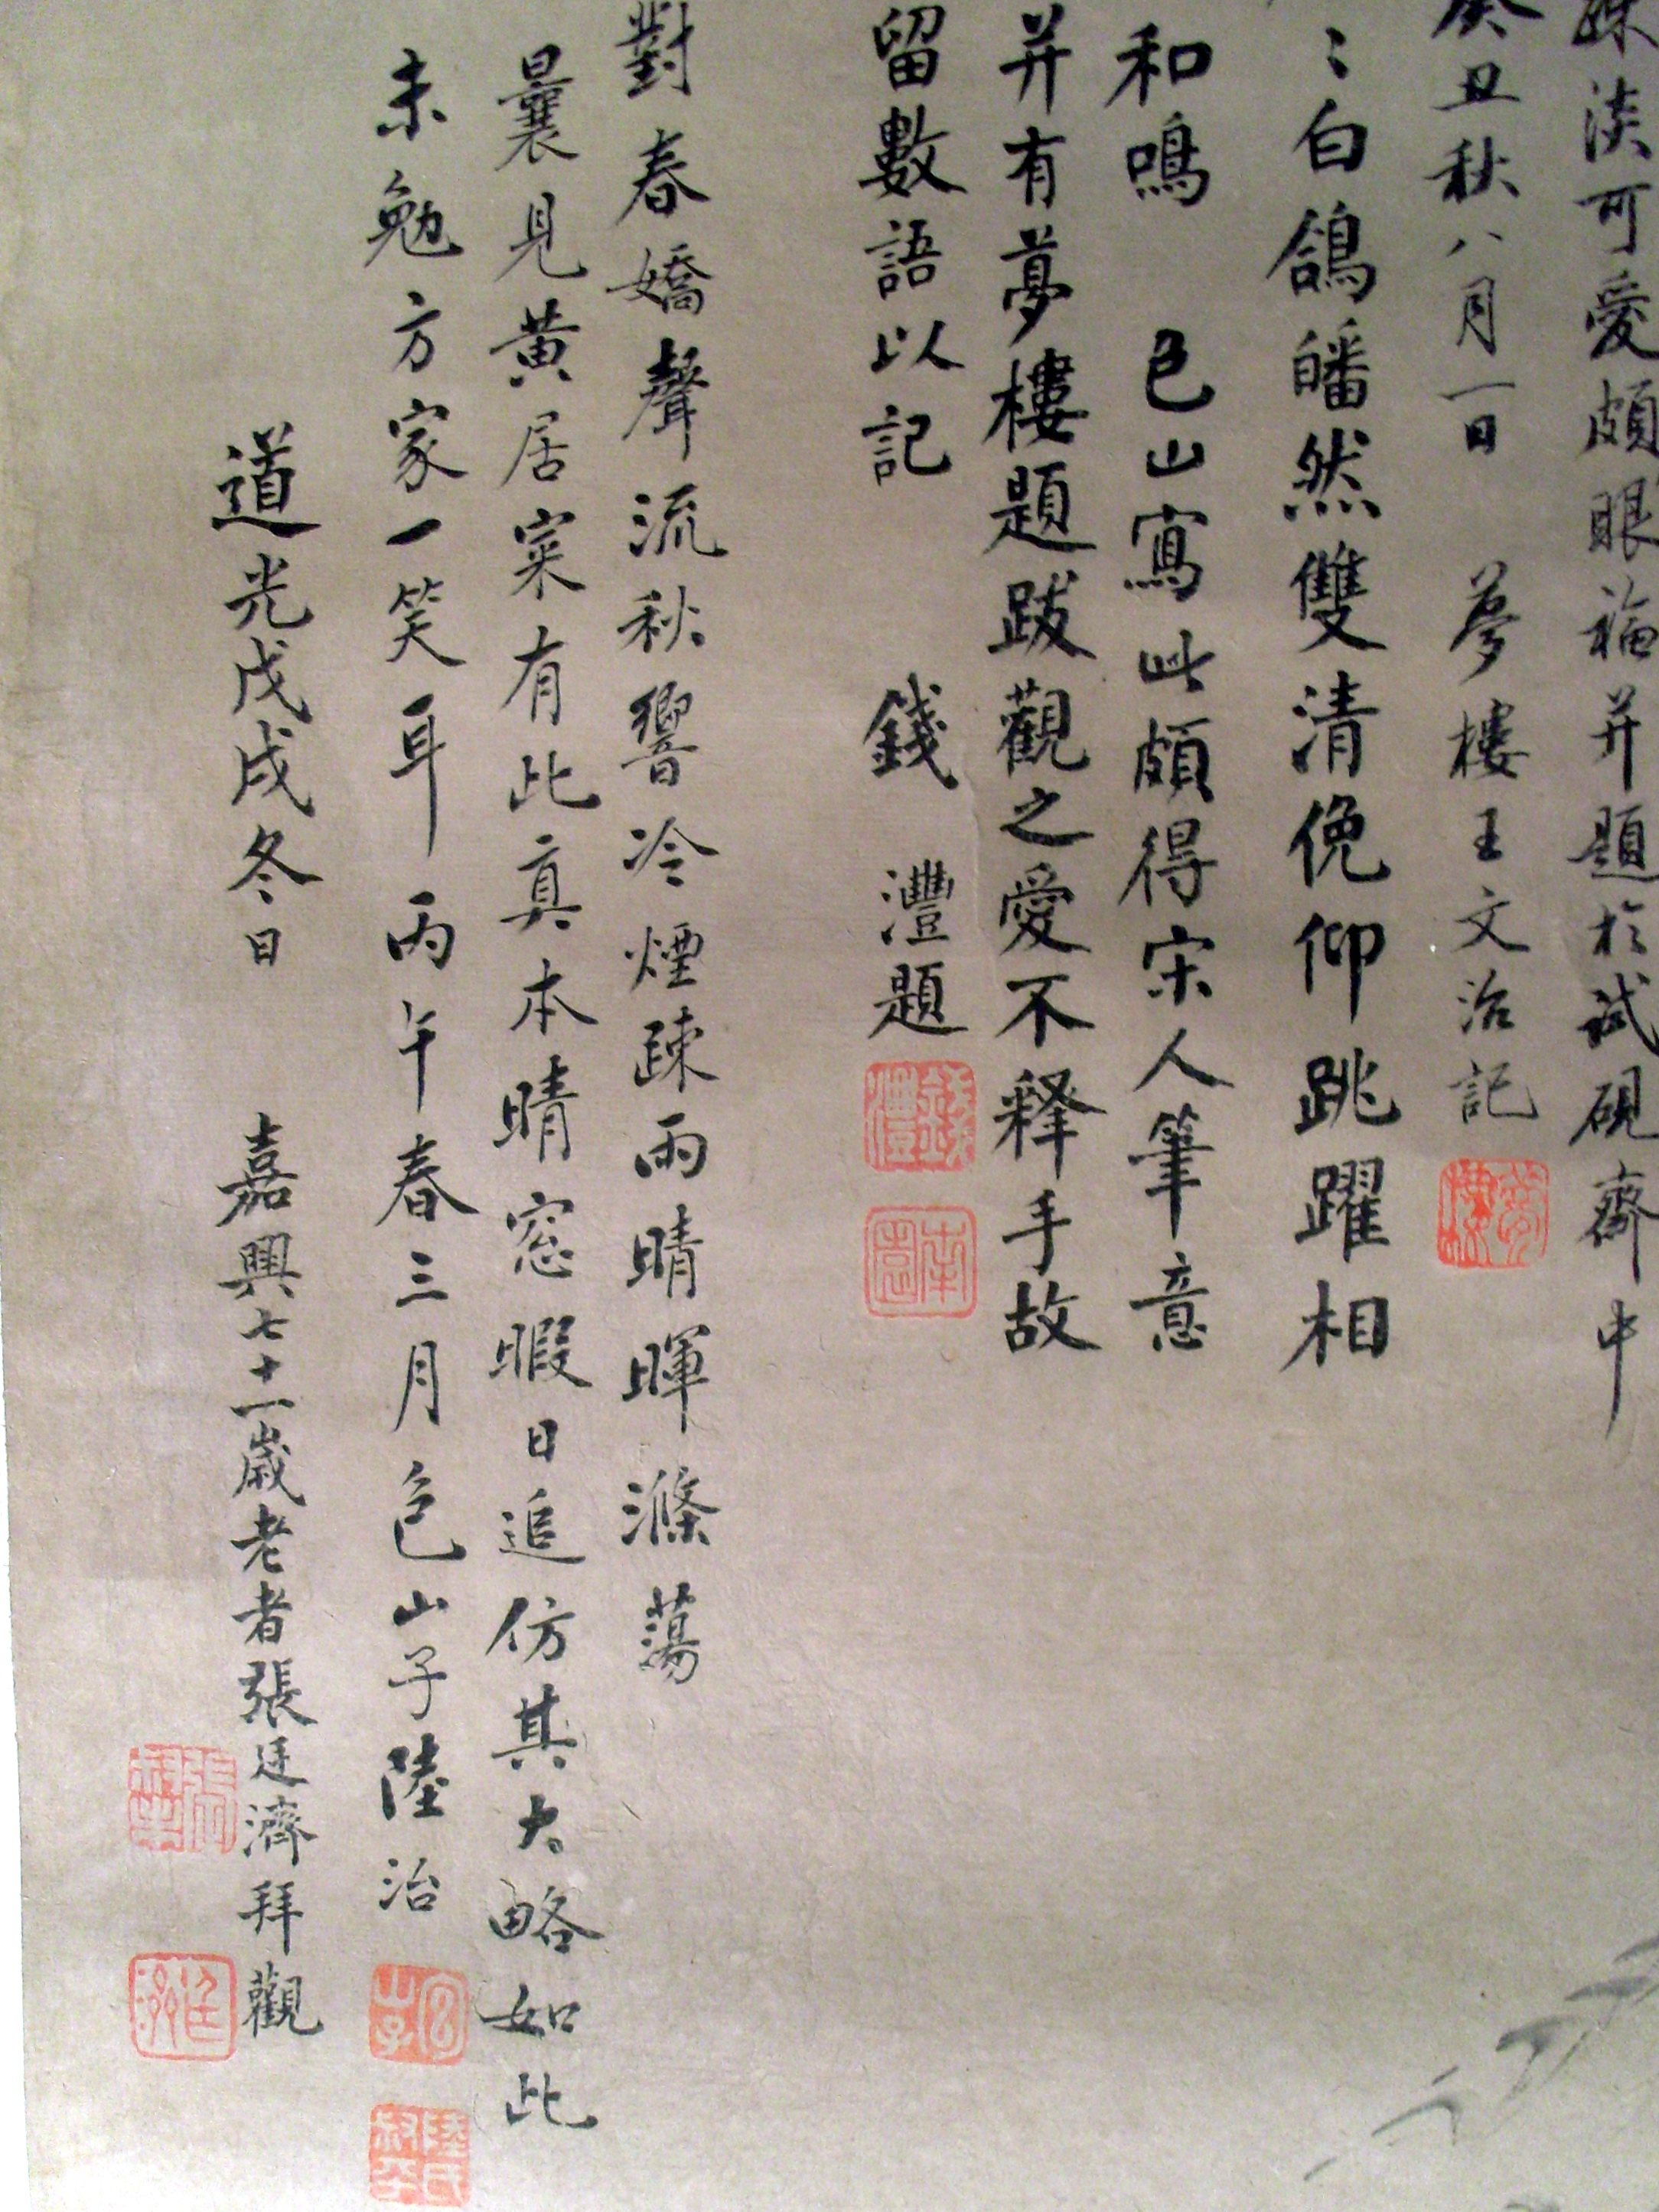 淡可愛頗眼福并題於試硯齋中
癸丑秋八月一日 夢樓王文治記
夢樓
〻白鴿皤然雙清俛仰跳躍相
和鳴 包山寫此頗得宋人筆意
并有夢樓題跋觀之愛不釋手故
留數語以記 錢灃題
錢灃
南園
對春嬌聲流秋響冷煙踈雨晴暉滌蕩
曩見黃居寀有此真本晴窓暇日追仿其大略如此
未勉方家一笑耳 丙午春三月包山子陸治
包山子
陸氏叔平
道光戊戌冬日 嘉興七十一歲老者張廷濟拜觀